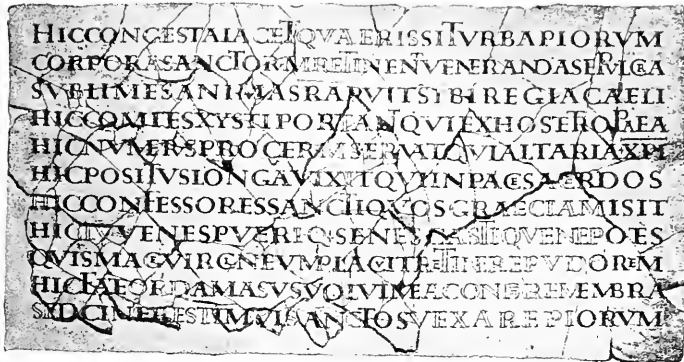 HICCONGESTAIACETQVAERISSITVRBAPIORVM
CORPORASANCTORMRETINENVENERANDASEPVLCRA
SVBLIMESANIMASRAPVITSIBIREGIACAELI
HICCOMITESXYSTIPORTANQVIEXHOSETROPAEA
HICNVMERVSPROCERMSERVATQVIALTARIAXPI
HICPOSITVSLONGAVIXITQVIINPACESACERDOS
HICCONFESSORESSANCTIQVOSGRAECIAMISIT
HICIVVENESPVERIQ·SENESCASTIQVENEPOTES
QVISMAGEVIRGINEVMPLACVITRETINEREPVDOREM
HICFATEORDAMASVSVOLVIMEACONDEREMEMBRA
SEDCINERESTIMVISANCTOSVEXAREPIORVM